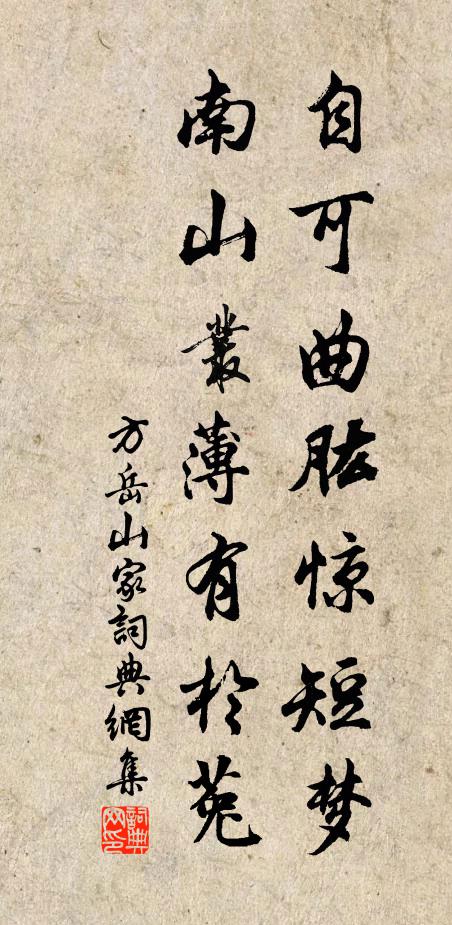 自可曲肱惊短梦
南山叢薄有於菟
方岳山家詞典網集
詞典網印